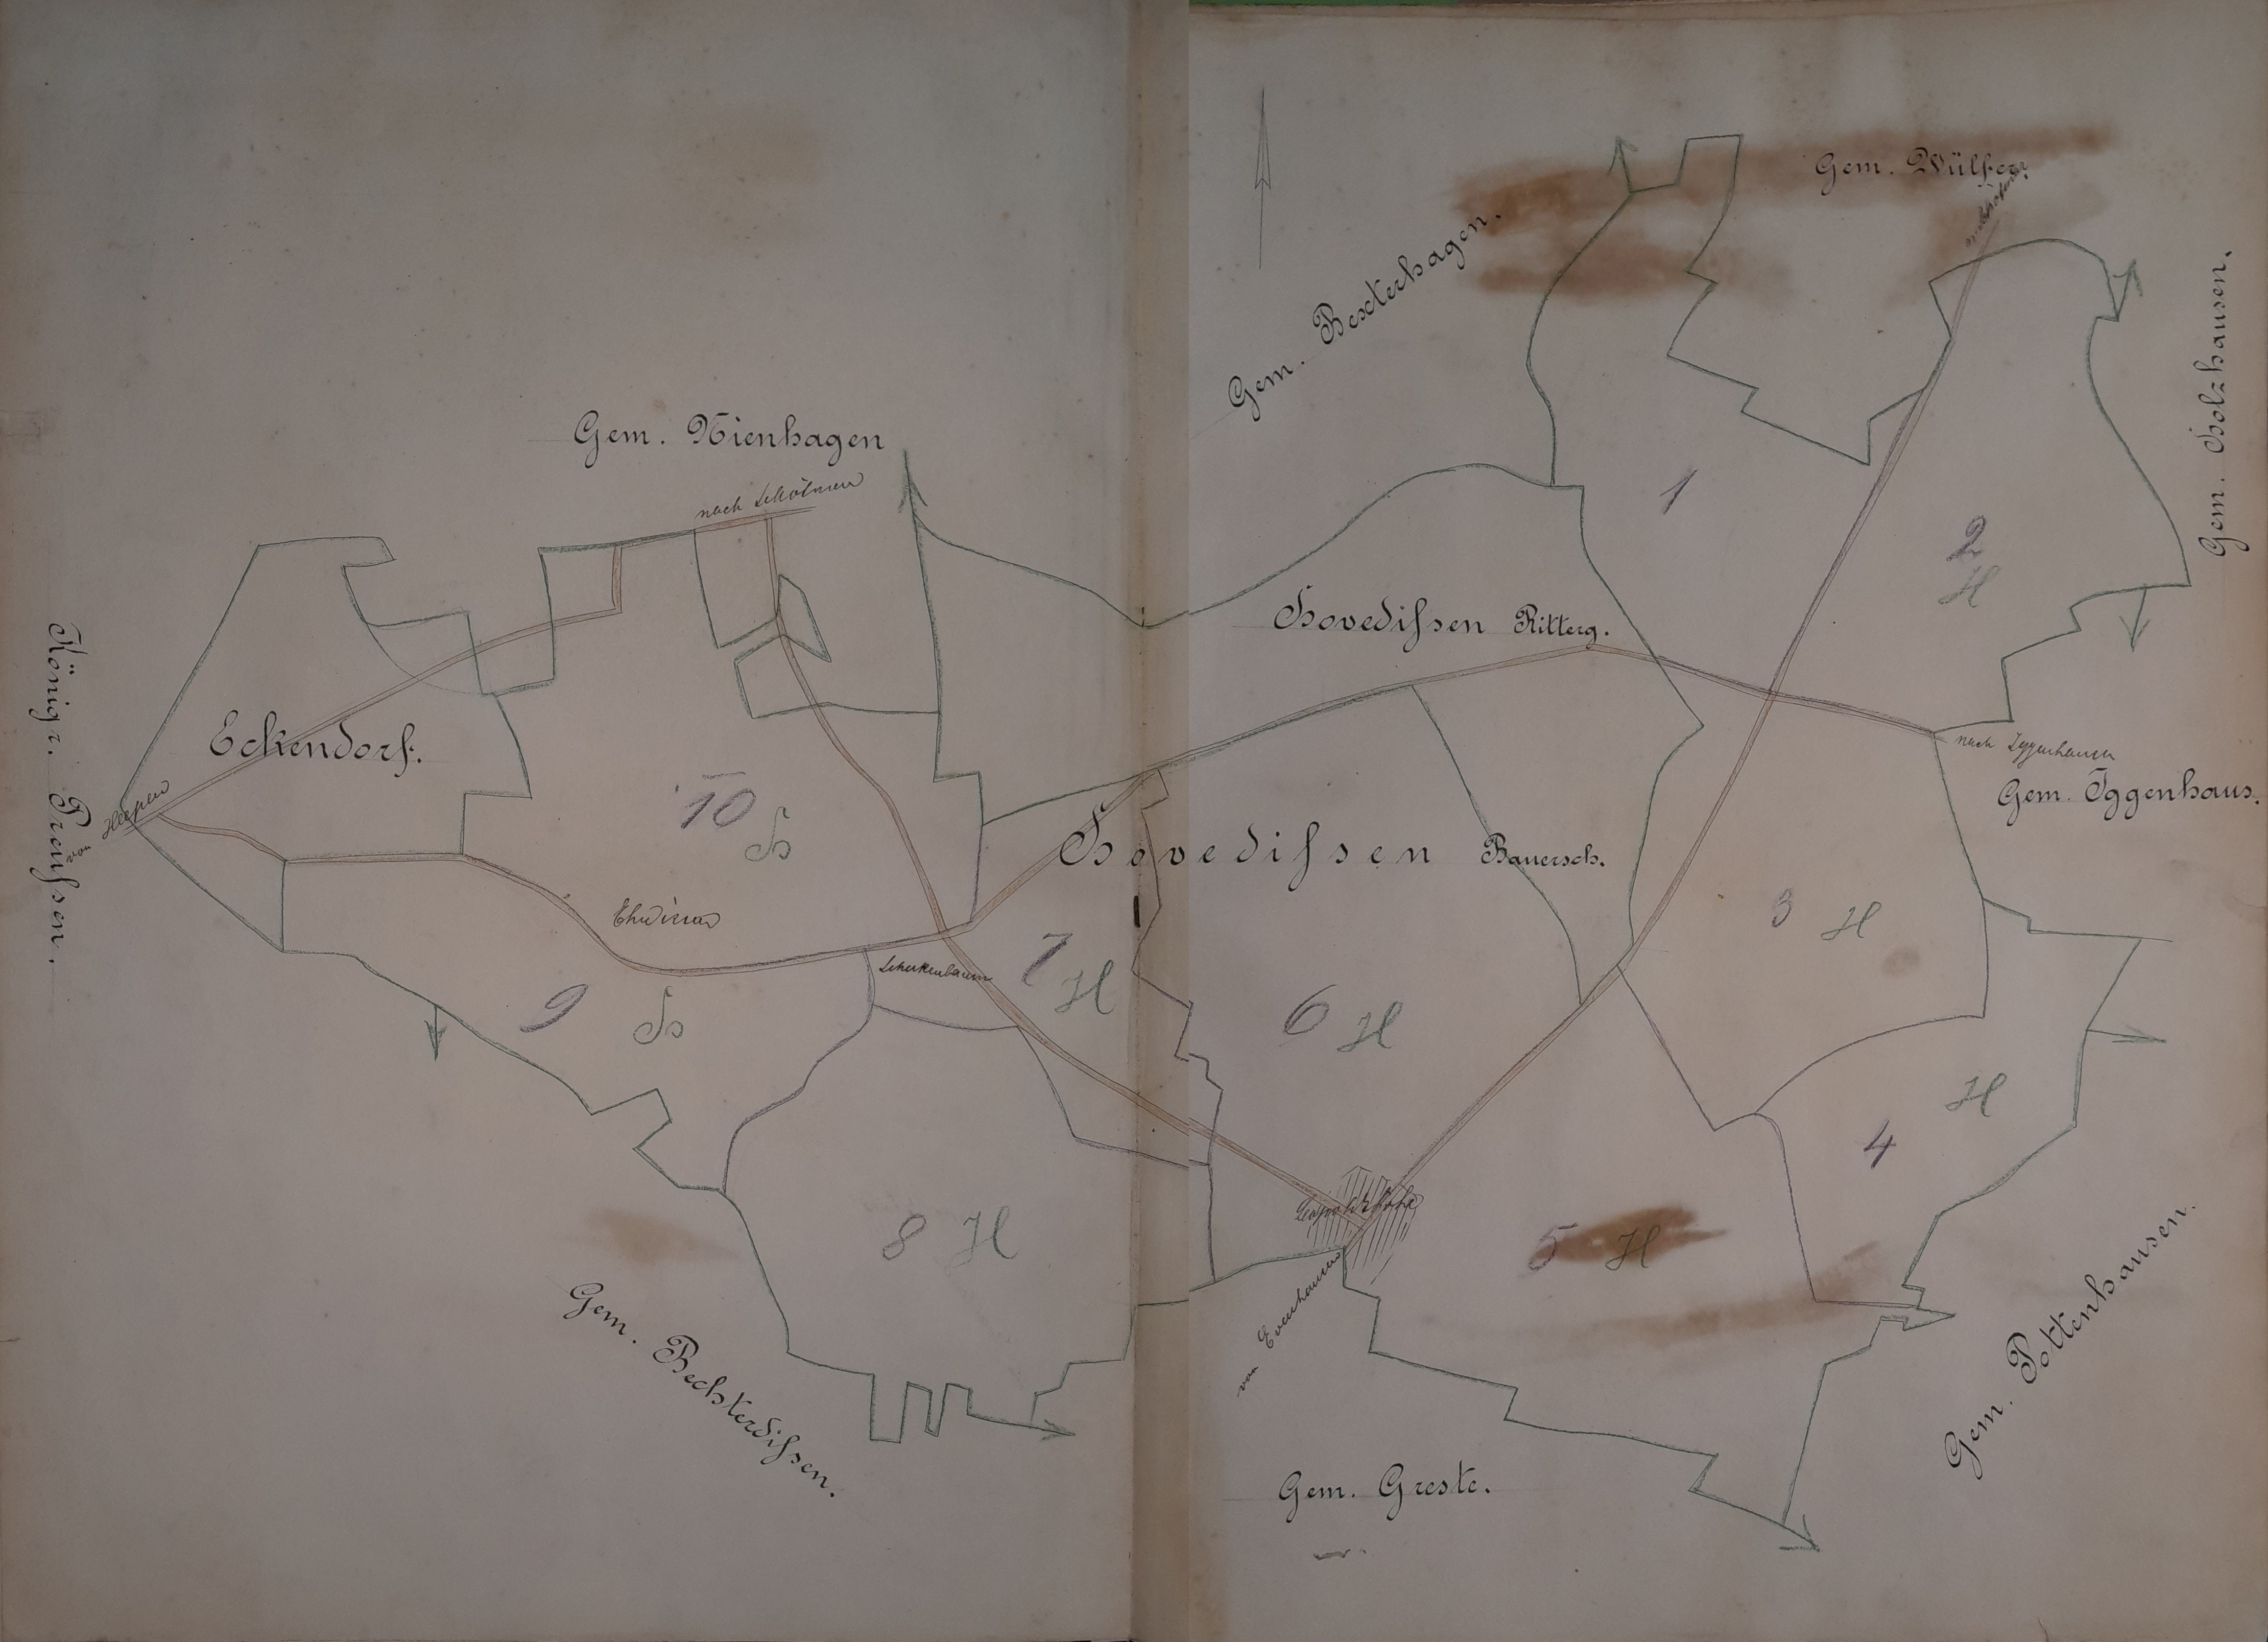 Gem. Wülfer
Gem. Bexterhagen.
Gem. Holzhausen.
Gem. Nienhagen
nach Schötmar
1
2
H
Hovediſsen Ritterg.
Königr. Preuſsen.
Eckendorf.
von Heepen
nach Iggenhausen
Gem. Iggenhaus.
10
H
Hovediſsen Bauersch.
3 H
Schukenbaum
7 H
9 H
6 H
H
4
8 H
Leopoldshöhe
5 H
von Evenhausen
Gem. Bechterdiſsen.
Gem. Pottenhausen.
Gem. Greste.